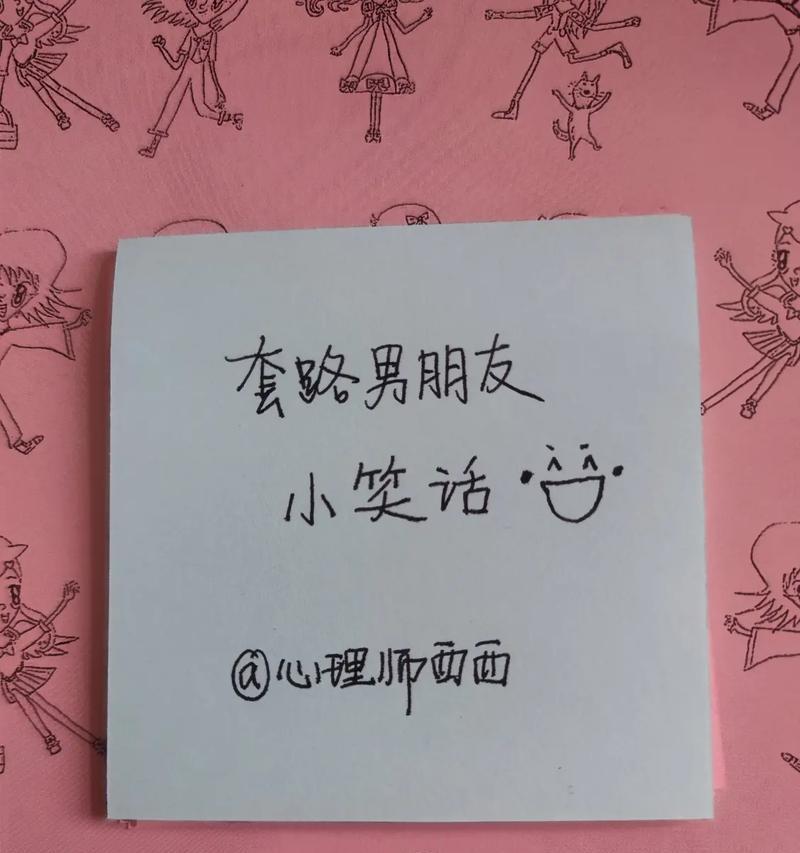 套路男朋友
小笑话
@心理师西西